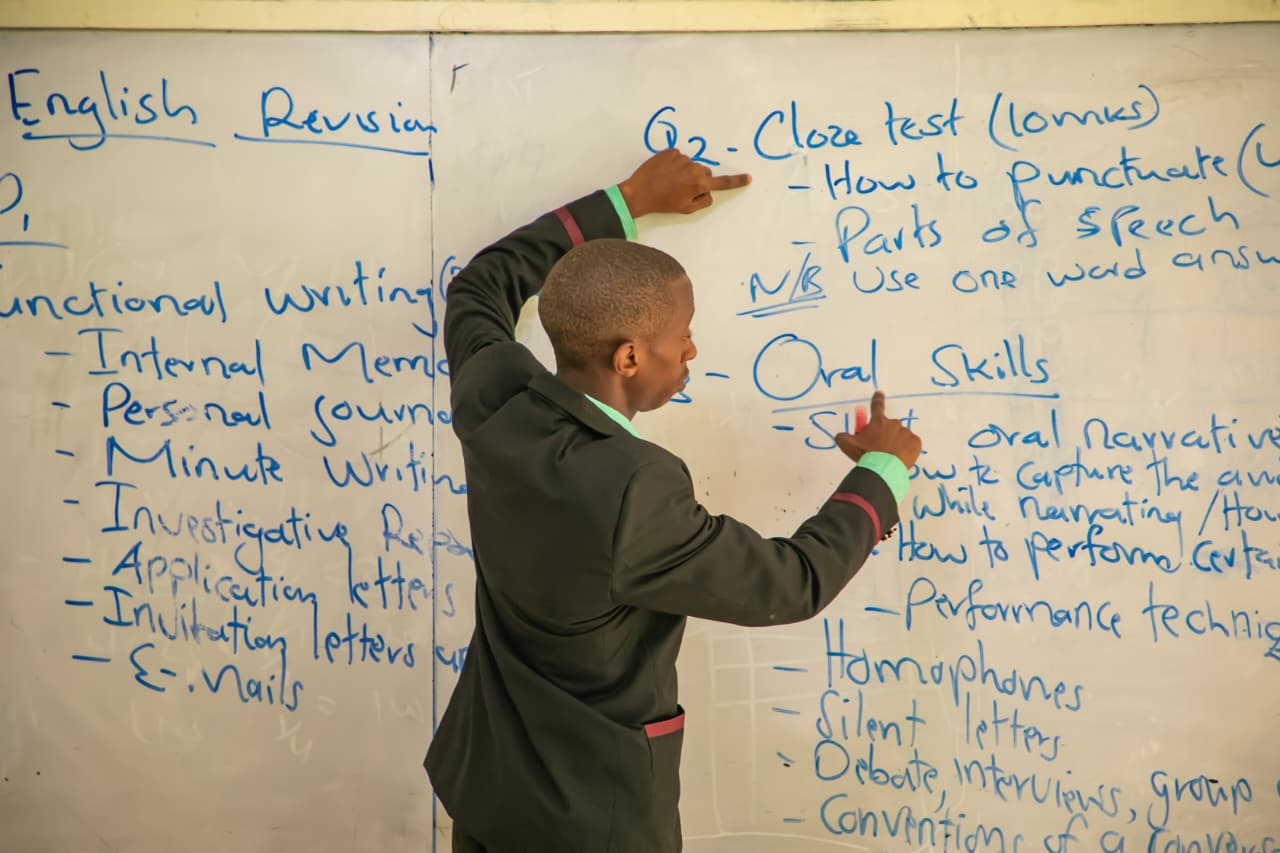 English Revision
Q1
unctional writing (
- Internal Mem
- Personal Journ
- Minute Writin
- Investigative Repo
- Application letters
- Invitation letters
- E-Mails
Q2 - Cloze test (10mks)
- How to punctuate (
- Parts of speech
N/B Use one word answ
- Oral Skills
- oral narrative
ow to capture the
while narrating / How
How to perform Certa
- Performance techniq
- Homophones
- Silent letters
- Debate, interviews, group
- Conventions of a Convers